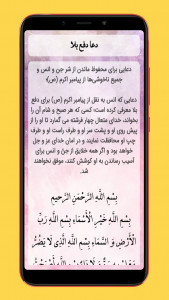 دعا دفع بلا
دعایی برای محفوظ ماندن از شر جن و انس و
جمیع ناخوشی‌ها از پیامبر اکرم (ص)؛
دعایی که انس به نقل از پیامبر اکرم (ص) برای دفع
بلا معرفی کرده است: کسی که هر صبح و شام آن را
بخواند، خدای متعال چهار فرشته می گمارد تا او را از
پیش روی او و پشت سر او و طرف راست او و طرف
چپ او محافظت نمایند و در امان خدای عز و جل
خواهد بود و اگر همه خلایق از جنّ و انس برای
آسیب رساندن به او کوشش کنند، موفق نخواهند
شد.
بِسْمِ اللَّهِ الرَّحْمَنِ الرَّحِیمِ
بِسْمِ اللَّهِ خَیْرِ الْأَسْمَاءِ بِسْمِ اللَّهِ رَبِّ
الْأَرْضِ وَ السَّمَاءِ بِسْمِ اللَّهِ الَّذِی لَا یَضُرُّ